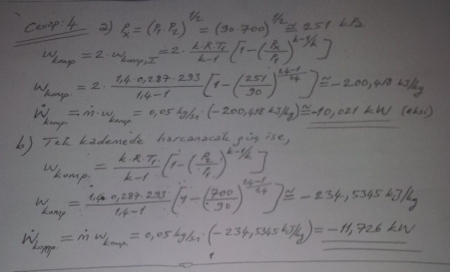 Cevap: 4 a) Px = (P1.P2)^1/2 = (90.700)^1/2 ≅ 251 kPa
wkomp = 2.wkomp,I = 2. k.R.T1/k-1 [1-(Px/P1)^k-1/k]
wkomp. = 2. 1,4.0,287.293/1,4-1 [1-(251/90)^1,4-1/1,4] ≅ -200,418 kJ/kg
Ẇkomp. = ṁ.wkomp. = 0,05 kg/sn.(-200,418 kJ/kg) ≅ -10,021 kW (eksi)
b) Tek kademede harcanacak güç ise,
wkomp. = k.R.T1/k-1 [1-(P2/P1)^k-1/k]
wkomp = 1,4.0,287.293/1,4-1 [1-(700/90)^1,4-1/1,4] ≅ -234,5345 kJ/kg
Ẇkomp. = ṁ.wkomp. = 0,05 kg/sn.(-234,5345 kJ/kg) = -11,726 kW